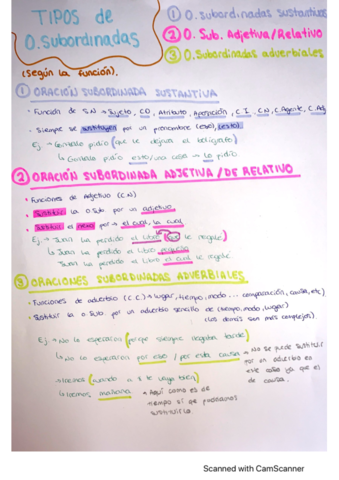 TIPOS de
O.Subordinadas
(según la función).
① O. subordinadas sustantivas
② O. Sub. Adjetiva/Relativo
③ O. Subordinadas adverbiales
① ORACIÓN SUBORDINADA SUSTANTIVA
• Función de S.N → Sujeto, CD, Atributo, Aposición, C.I, C.N, C.Agente, C.Adj
• Siempre se sustituyen por un pronombre (eso), (esto).
Ej → Gonzalo pidió (que le dejara el bolígrafo)
↳ Gonzalo pidió esto/una cosa → lo pidió.
② ORACIÓN SUBORDINADA ADJETIVA / DE RELATIVO
• Funciones de Adjetivo (C.N)
• Sustituir la O.Sub por un adjetivo.
• Sustituir el nexo por → el cual, la cual.
Ej → Juan ha perdido el libro (que le regalé)
↳ Juan ha perdido el libro
Juan ha perdido el libro el cual le regalé
③ ORACIONES SUBORDINADAS ADVERBIALES.
• Funciones de adverbio (C.C) → lugar, tiempo, modo... comparación, causa, etc)
• Sustituir la O.Sub por un adverbio sencillo de (tiempo, modo, lugar)
(los demás son más complejos).
Ej → No la esperaron (porque siempre llegaba tarde)
↳ No la esperaron por eso / por esta causa → No se puede sustituir
por un adverbio en
este caso ya que es
de causa.
→ (cuando a ti te vaya bien)
↳ mañana → Aquí como es de
tiempo sí que podríamos
sustituirla.
Scanned with CamScanner